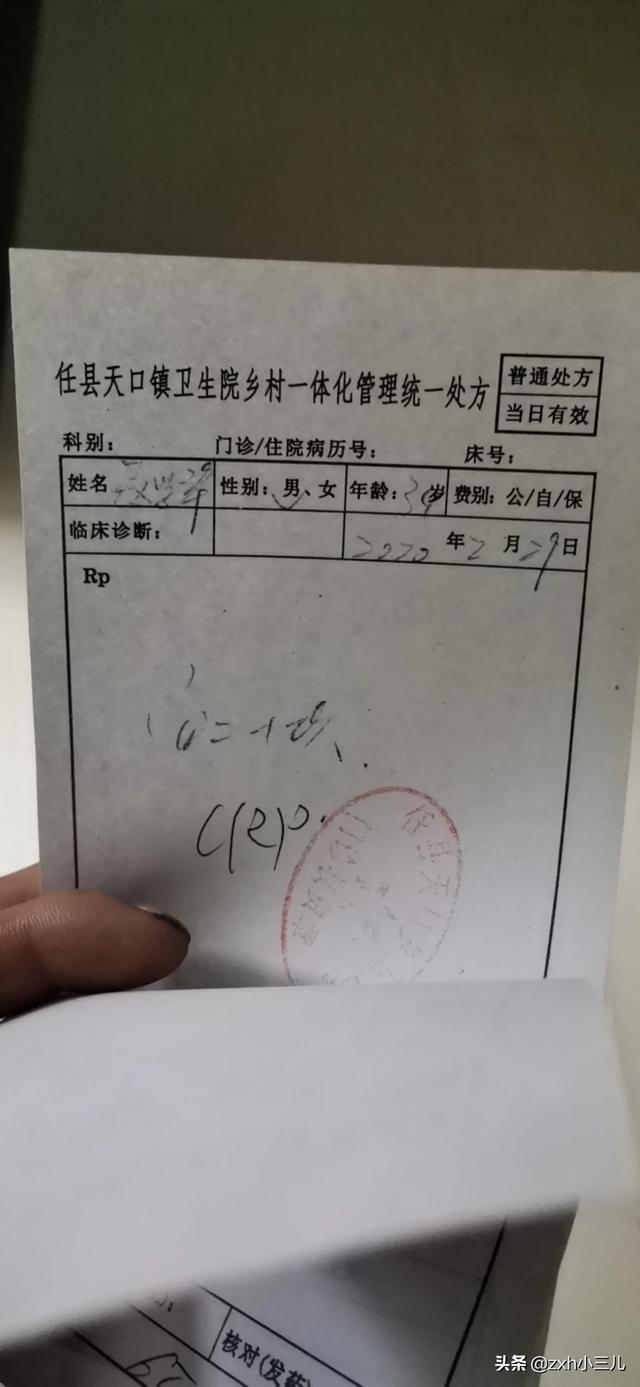 任县天口镇卫生院乡村一体化管理统一处方
普通处方
当日有效
科别： 门诊/住院病历号： 床号：
姓名 性别：男、女 年龄：39岁 费别：公/自/保
临床诊断： 2020年2月29日
Rp
C(R)P.
任县天口
核对(发药)
头条 @zxh小三儿